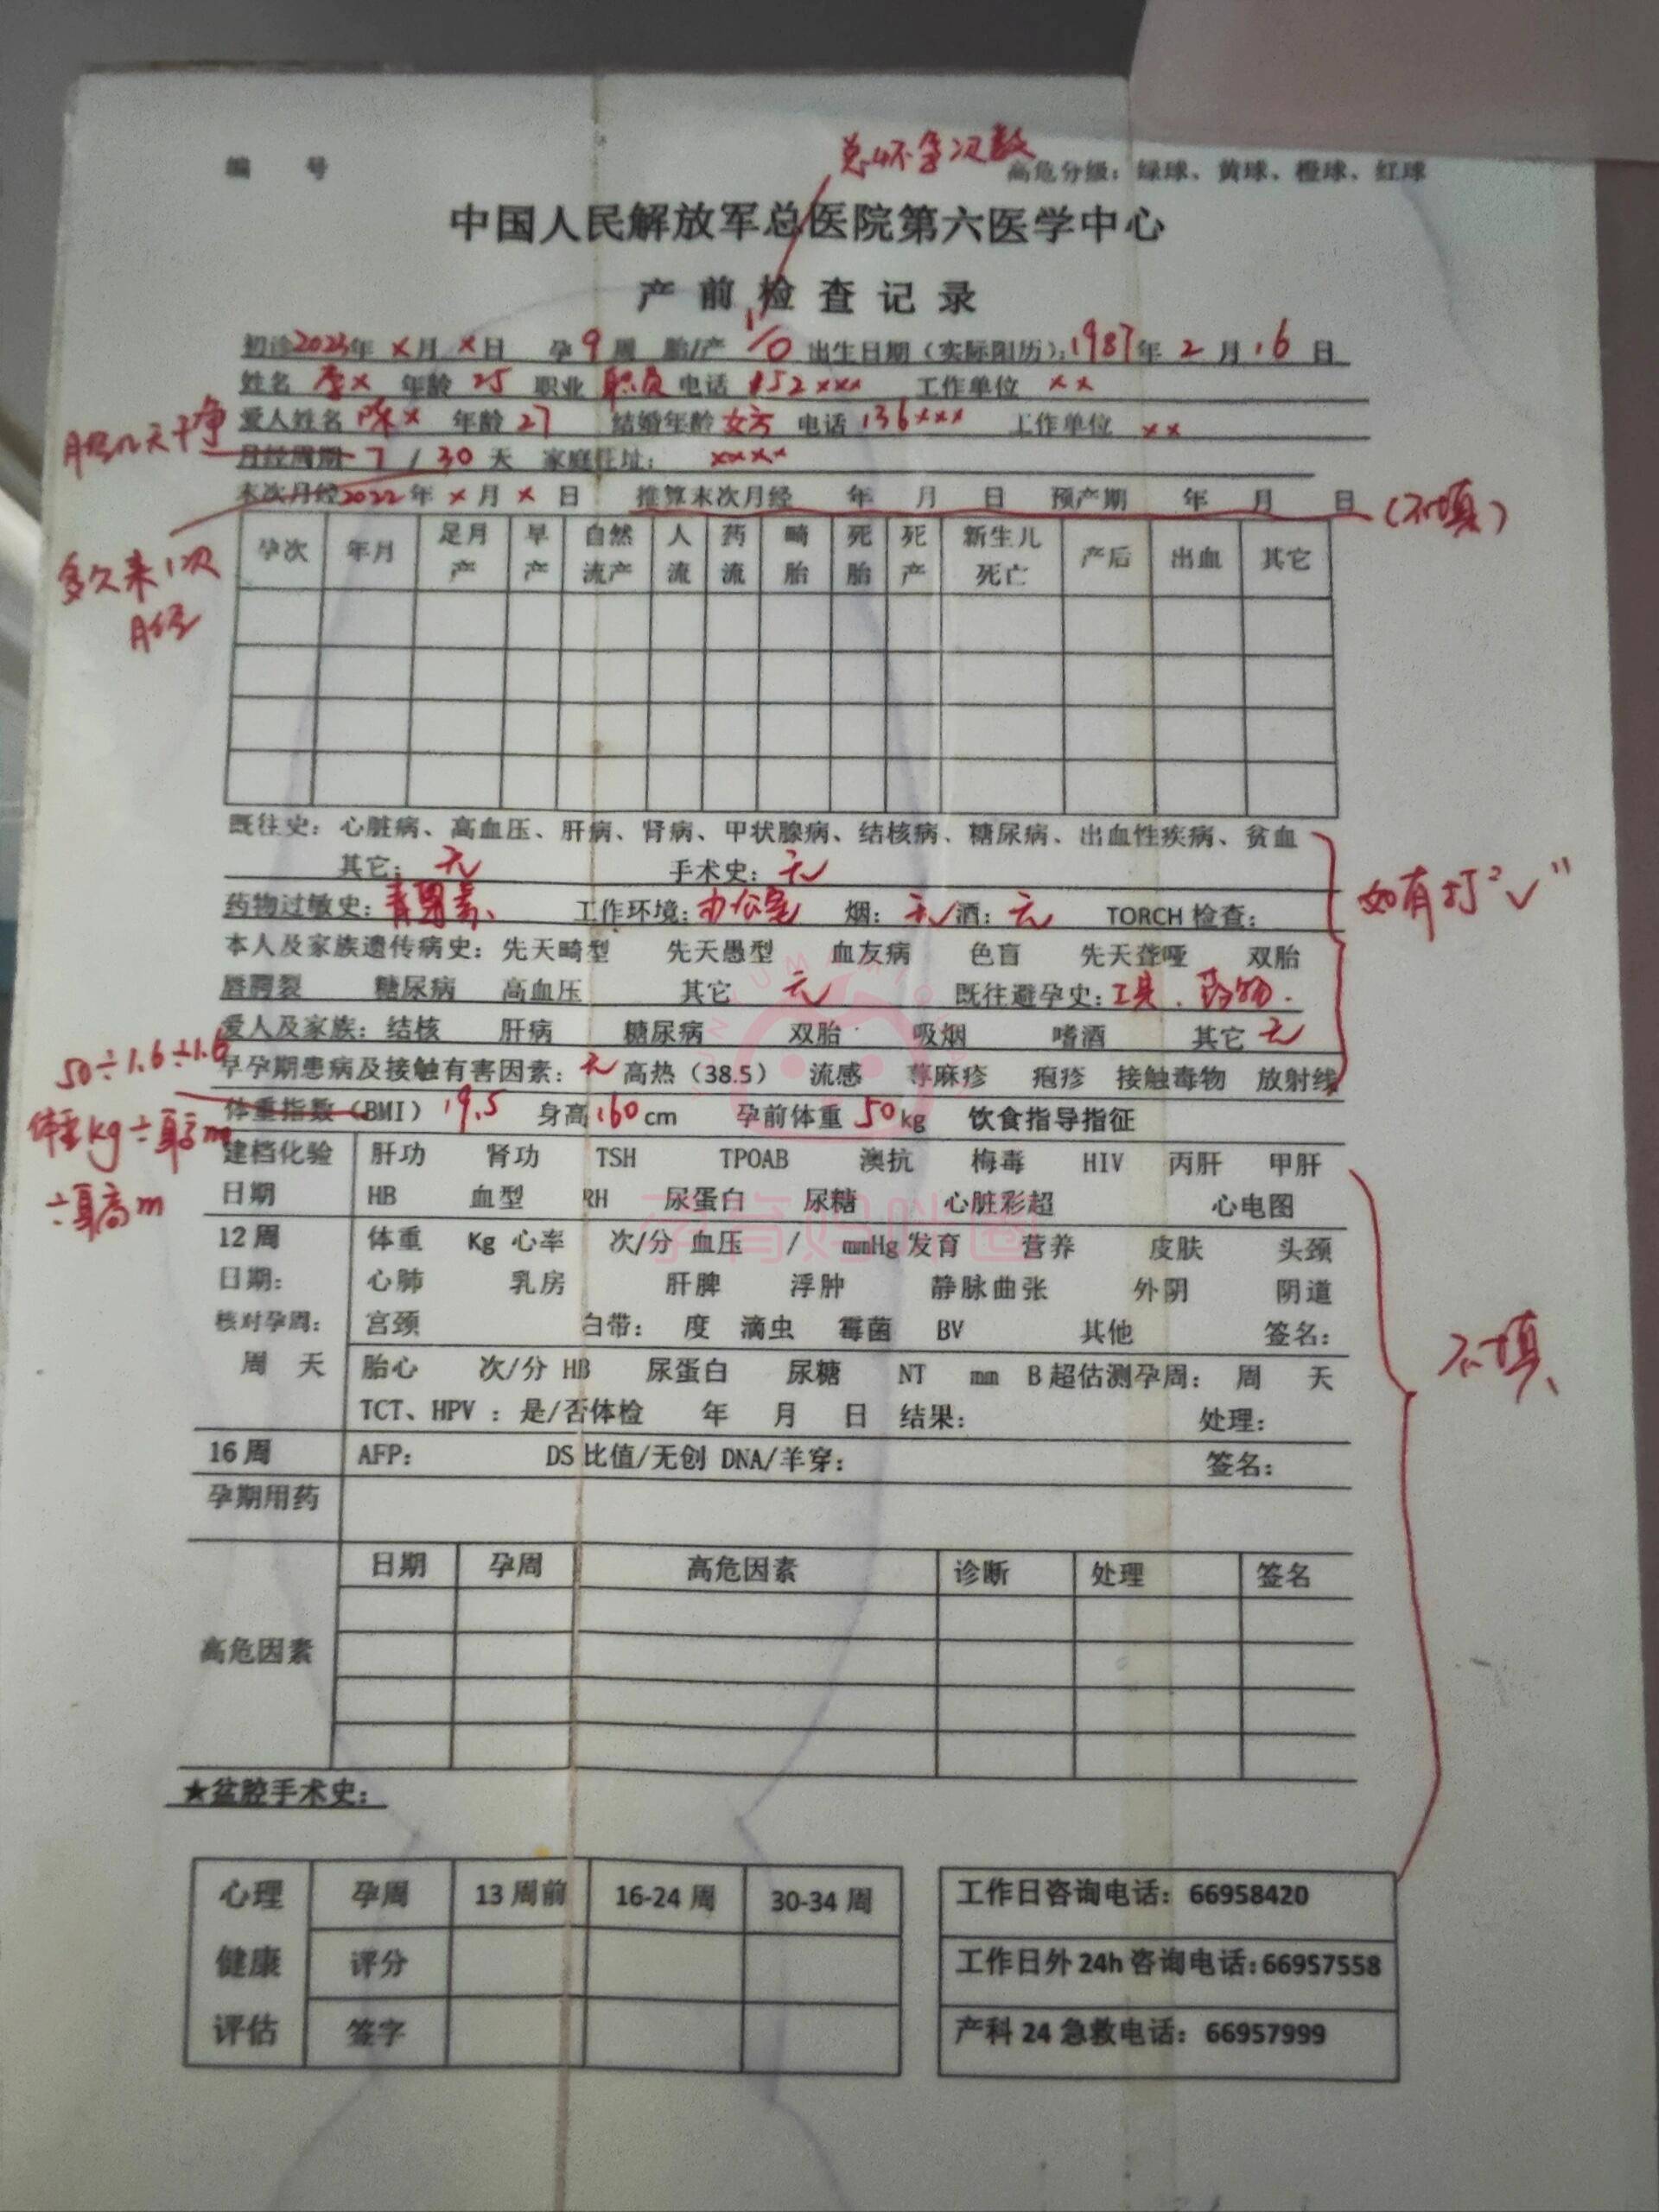 总怀孕次数
编 号 高危分级：绿球、黄球、橙球、红球
中国人民解放军总医院第六医学中心
产 前 检 查 记 录
初诊2023年 x月 x日 孕 9 周 胎/产 1/0 出生日期（实际阳历）：1987年 2 月 16 日
姓名 李x 年龄 25 职业 职员 电话 152xxx 工作单位 xx
爱人姓名 陈x 年龄 27 结婚年龄 女方 电话 136xxx 工作单位 xx
月经几天干净
月经周期 7 / 30 天 家庭住址： xxxx
末次月经2022年 x 月 x 日 推算末次月经 年 月 日 预产期 年 月 日 （不填）
多久来1次
月经
孕次 年月 足月产 早产 自然流产 人流 药流 畸胎 死胎 死产 新生儿死亡 产后 出血 其它
既往史：心脏病、高血压、肝病、肾病、甲状腺病、结核病、糖尿病、出血性疾病、贫血
其它：无 手术史：无
如有打"√"
药物过敏史：青霉素、 工作环境：办公室 烟：无 酒：无 TORCH 检查：
本人及家族遗传病史：先天畸型 先天愚型 血友病 色盲 先天聋哑 双胎
唇腭裂 糖尿病 高血压 其它 无 既往避孕史：工具．药物．
爱人及家族：结核 肝病 糖尿病 双胎 吸烟 嗜酒 其它 无
50÷1.6÷1.6
早孕期患病及接触有害因素：无 高热（38.5） 流感 荨麻疹 疱疹 接触毒物 放射线
体重指数（BMI） 19.5 身高160cm 孕前体重 50kg 饮食指导指征
体重kg÷身高m
÷身高m
建档化验 肝功 肾功 TSH TPOAB 澳抗 梅毒 HIV 丙肝 甲肝
日期 HB 血型 RH 尿蛋白 尿糖 心脏彩超 心电图
孕育妈咪圈
12 周 体重 Kg 心率 次/分 血压 / mmHg 发育 营养 皮肤 头颈
日期： 心肺 乳房 肝脾 浮肿 静脉曲张 外阴 阴道
核对孕周： 宫颈 白带： 度 滴虫 霉菌 BV 其他 签名：
不填、
周 天 胎心 次/分 HB 尿蛋白 尿糖 NT mm B超估测孕周： 周 天
TCT、HPV ：是/否体检 年 月 日 结果： 处理：
16 周 AFP： DS 比值/无创 DNA/羊穿： 签名：
孕期用药
日期 孕周 高危因素 诊断 处理 签名
高危因素
★盆腔手术史：
心理 孕周 13 周前 16-24 周 30-34 周
健康 评分
评估 签字
工作日咨询电话：66958420
工作日外 24h 咨询电话：66957558
产科 24 急救电话：66957999